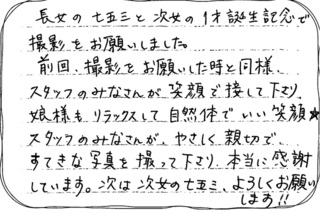 長女の七五三と次女の1才誕生記念で
撮影をお願いしました。
前回、撮影をお願いした時と同様、
スタッフのみなさんが笑顔で接して下さり、
娘様もリラックスして自然体でいい笑顔★
スタッフのみなさんが、やさしく親切で、
すてきな写真を撮って下さり、本当に感謝
しています。次は次女の七五三、よろしくお願い
します!!